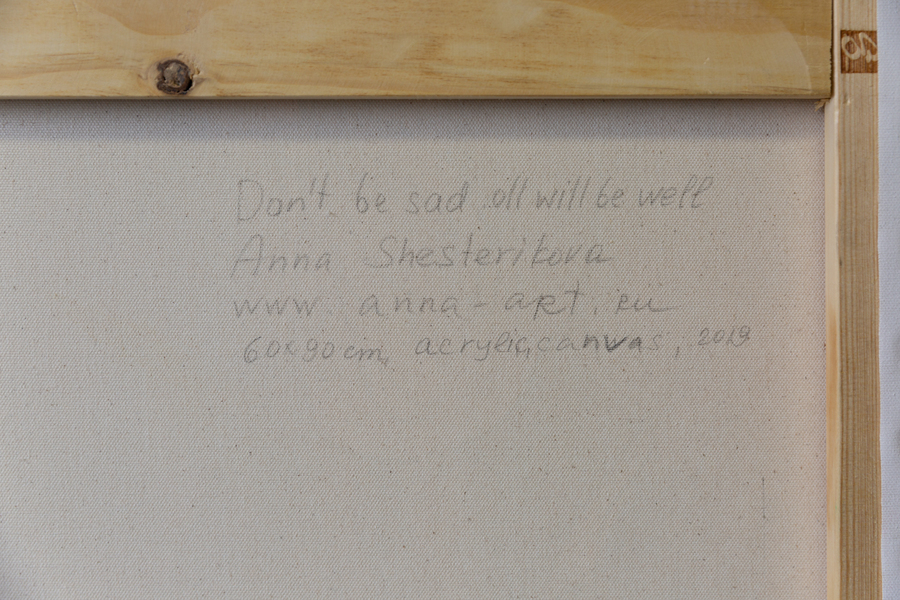 Don't be sad all will be well
Anna Shesterikova
www.anna-art.ru
60x90 cm, acrylic, canvas, 2019